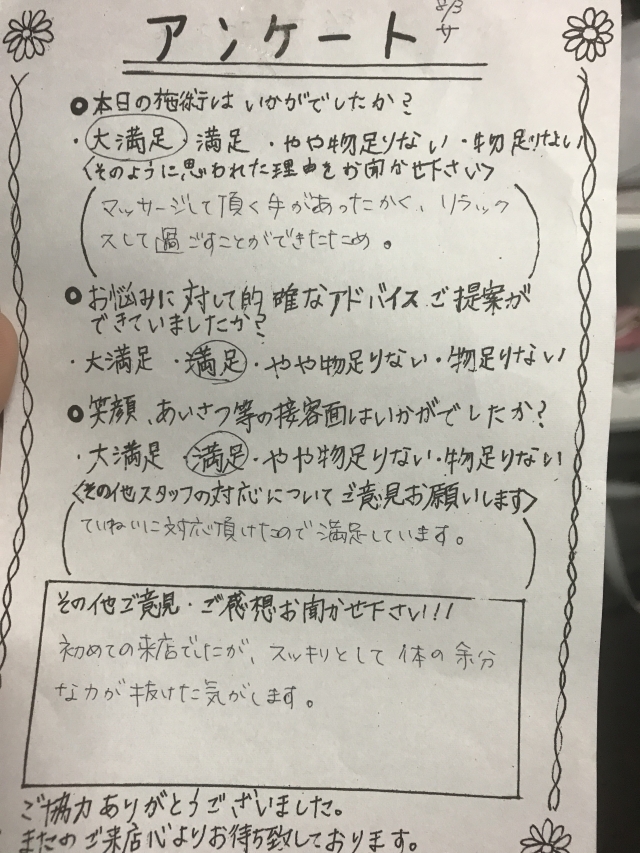 8/3
サ
アンケート
●本日の施術はいかがでしたか?
・大満足・満足・やや物足りない・物足りない
〈そのように思われた理由をお聞かせ下さい〉
マッサージして頂く手があったかく、リラック
スして過ごすことができたため。
●お悩みに対して的確なアドバイスご提案が
できていましたか?
・大満足・満足・やや物足りない・物足りない
●笑顔、あいさつ等の接客面はいかがでしたか?
・大満足・満足・やや物足りない・物足りない
〈その他スタッフの対応についてご意見お願いします〉
ていねいに対応頂けたので満足しています。
その他ご意見・ご感想お聞かせ下さい!!!
初めての来店でしたが、スッキリとして体の余分
な力が抜けた気がします。
ご協力ありがとうございました。
またのご来店心よりお待ち致しております。